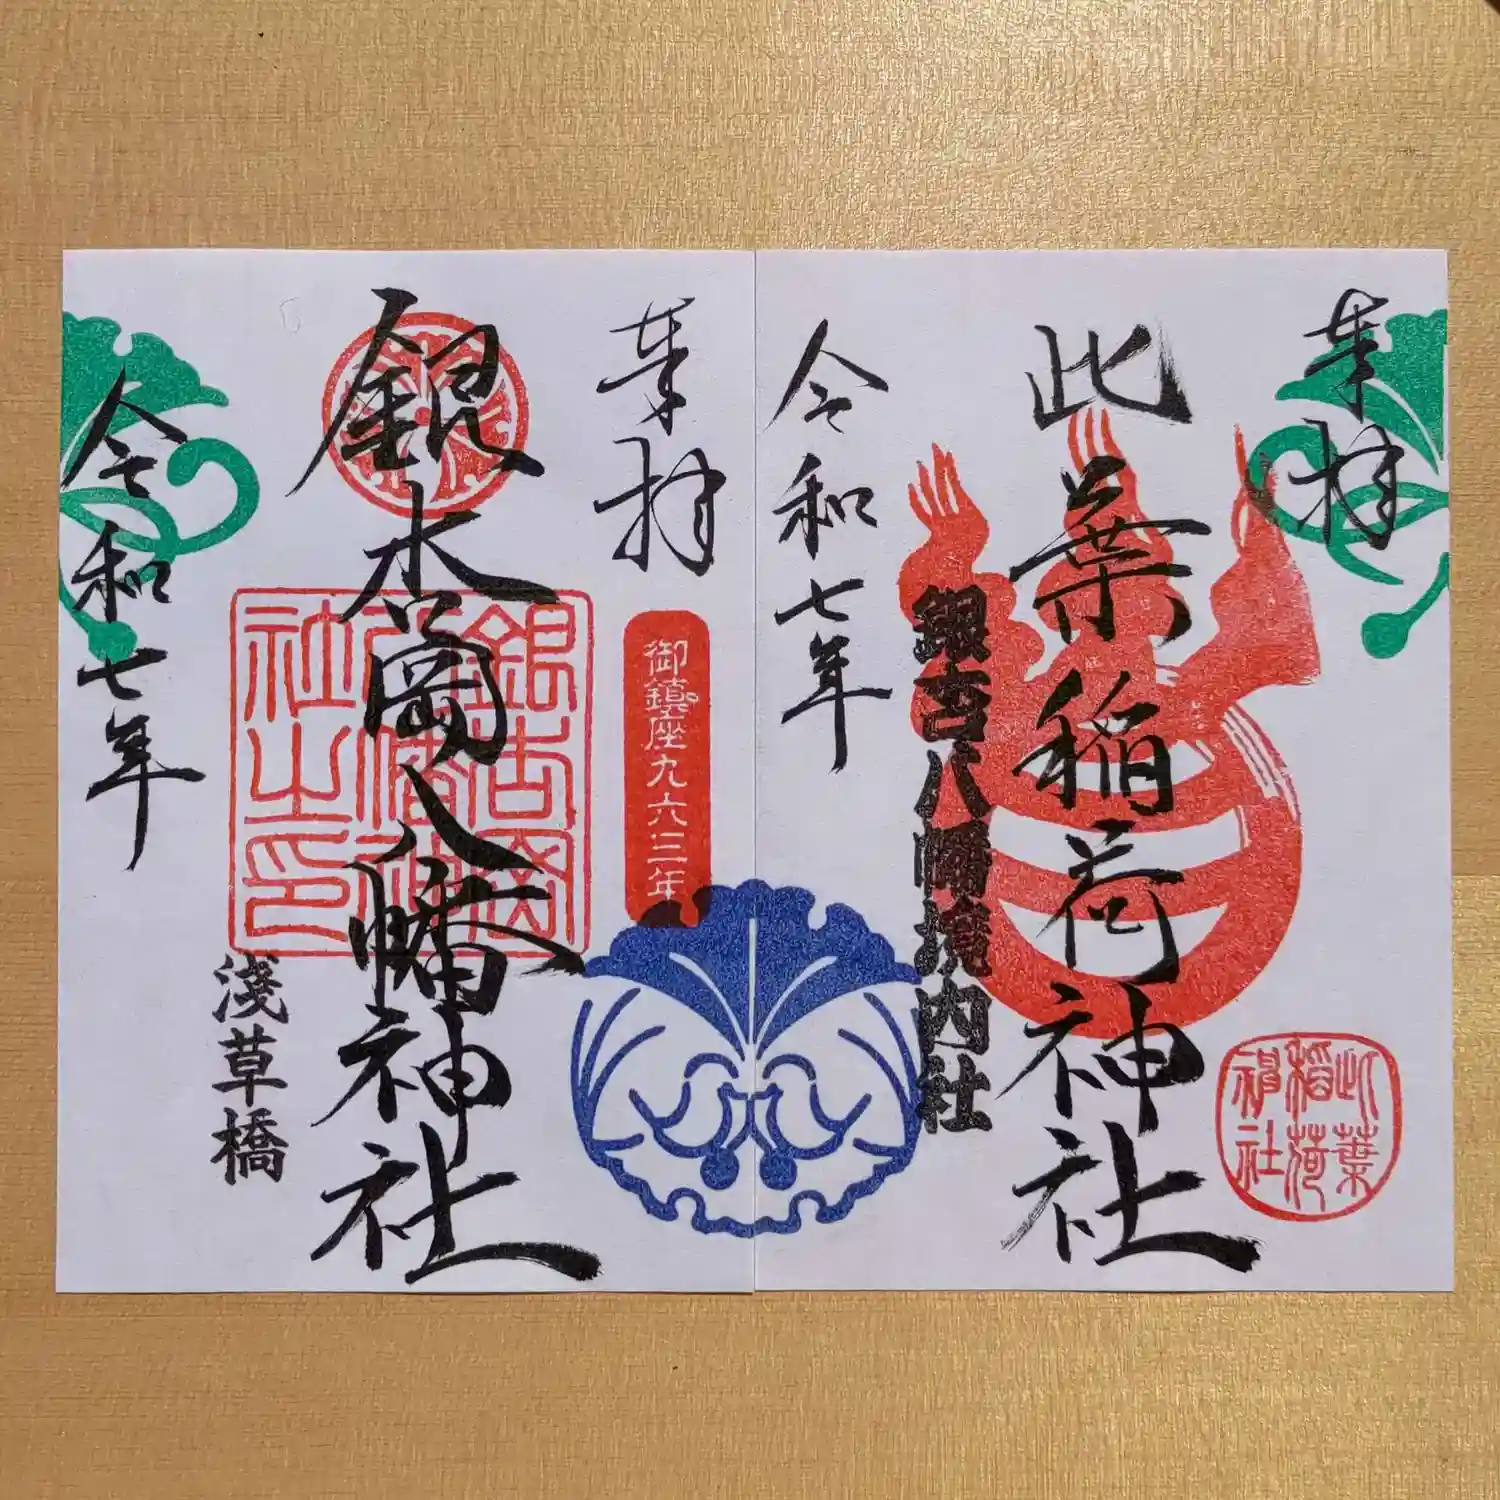 奉拝
此葉稲荷神社
此葉
稲荷
神社
銀杏八幡境内社
令和七年
奉拝
御鎮座九六三年
銀杏岡八幡神社
銀杏岡
八幡神
社之印
淺草橋
令和七年